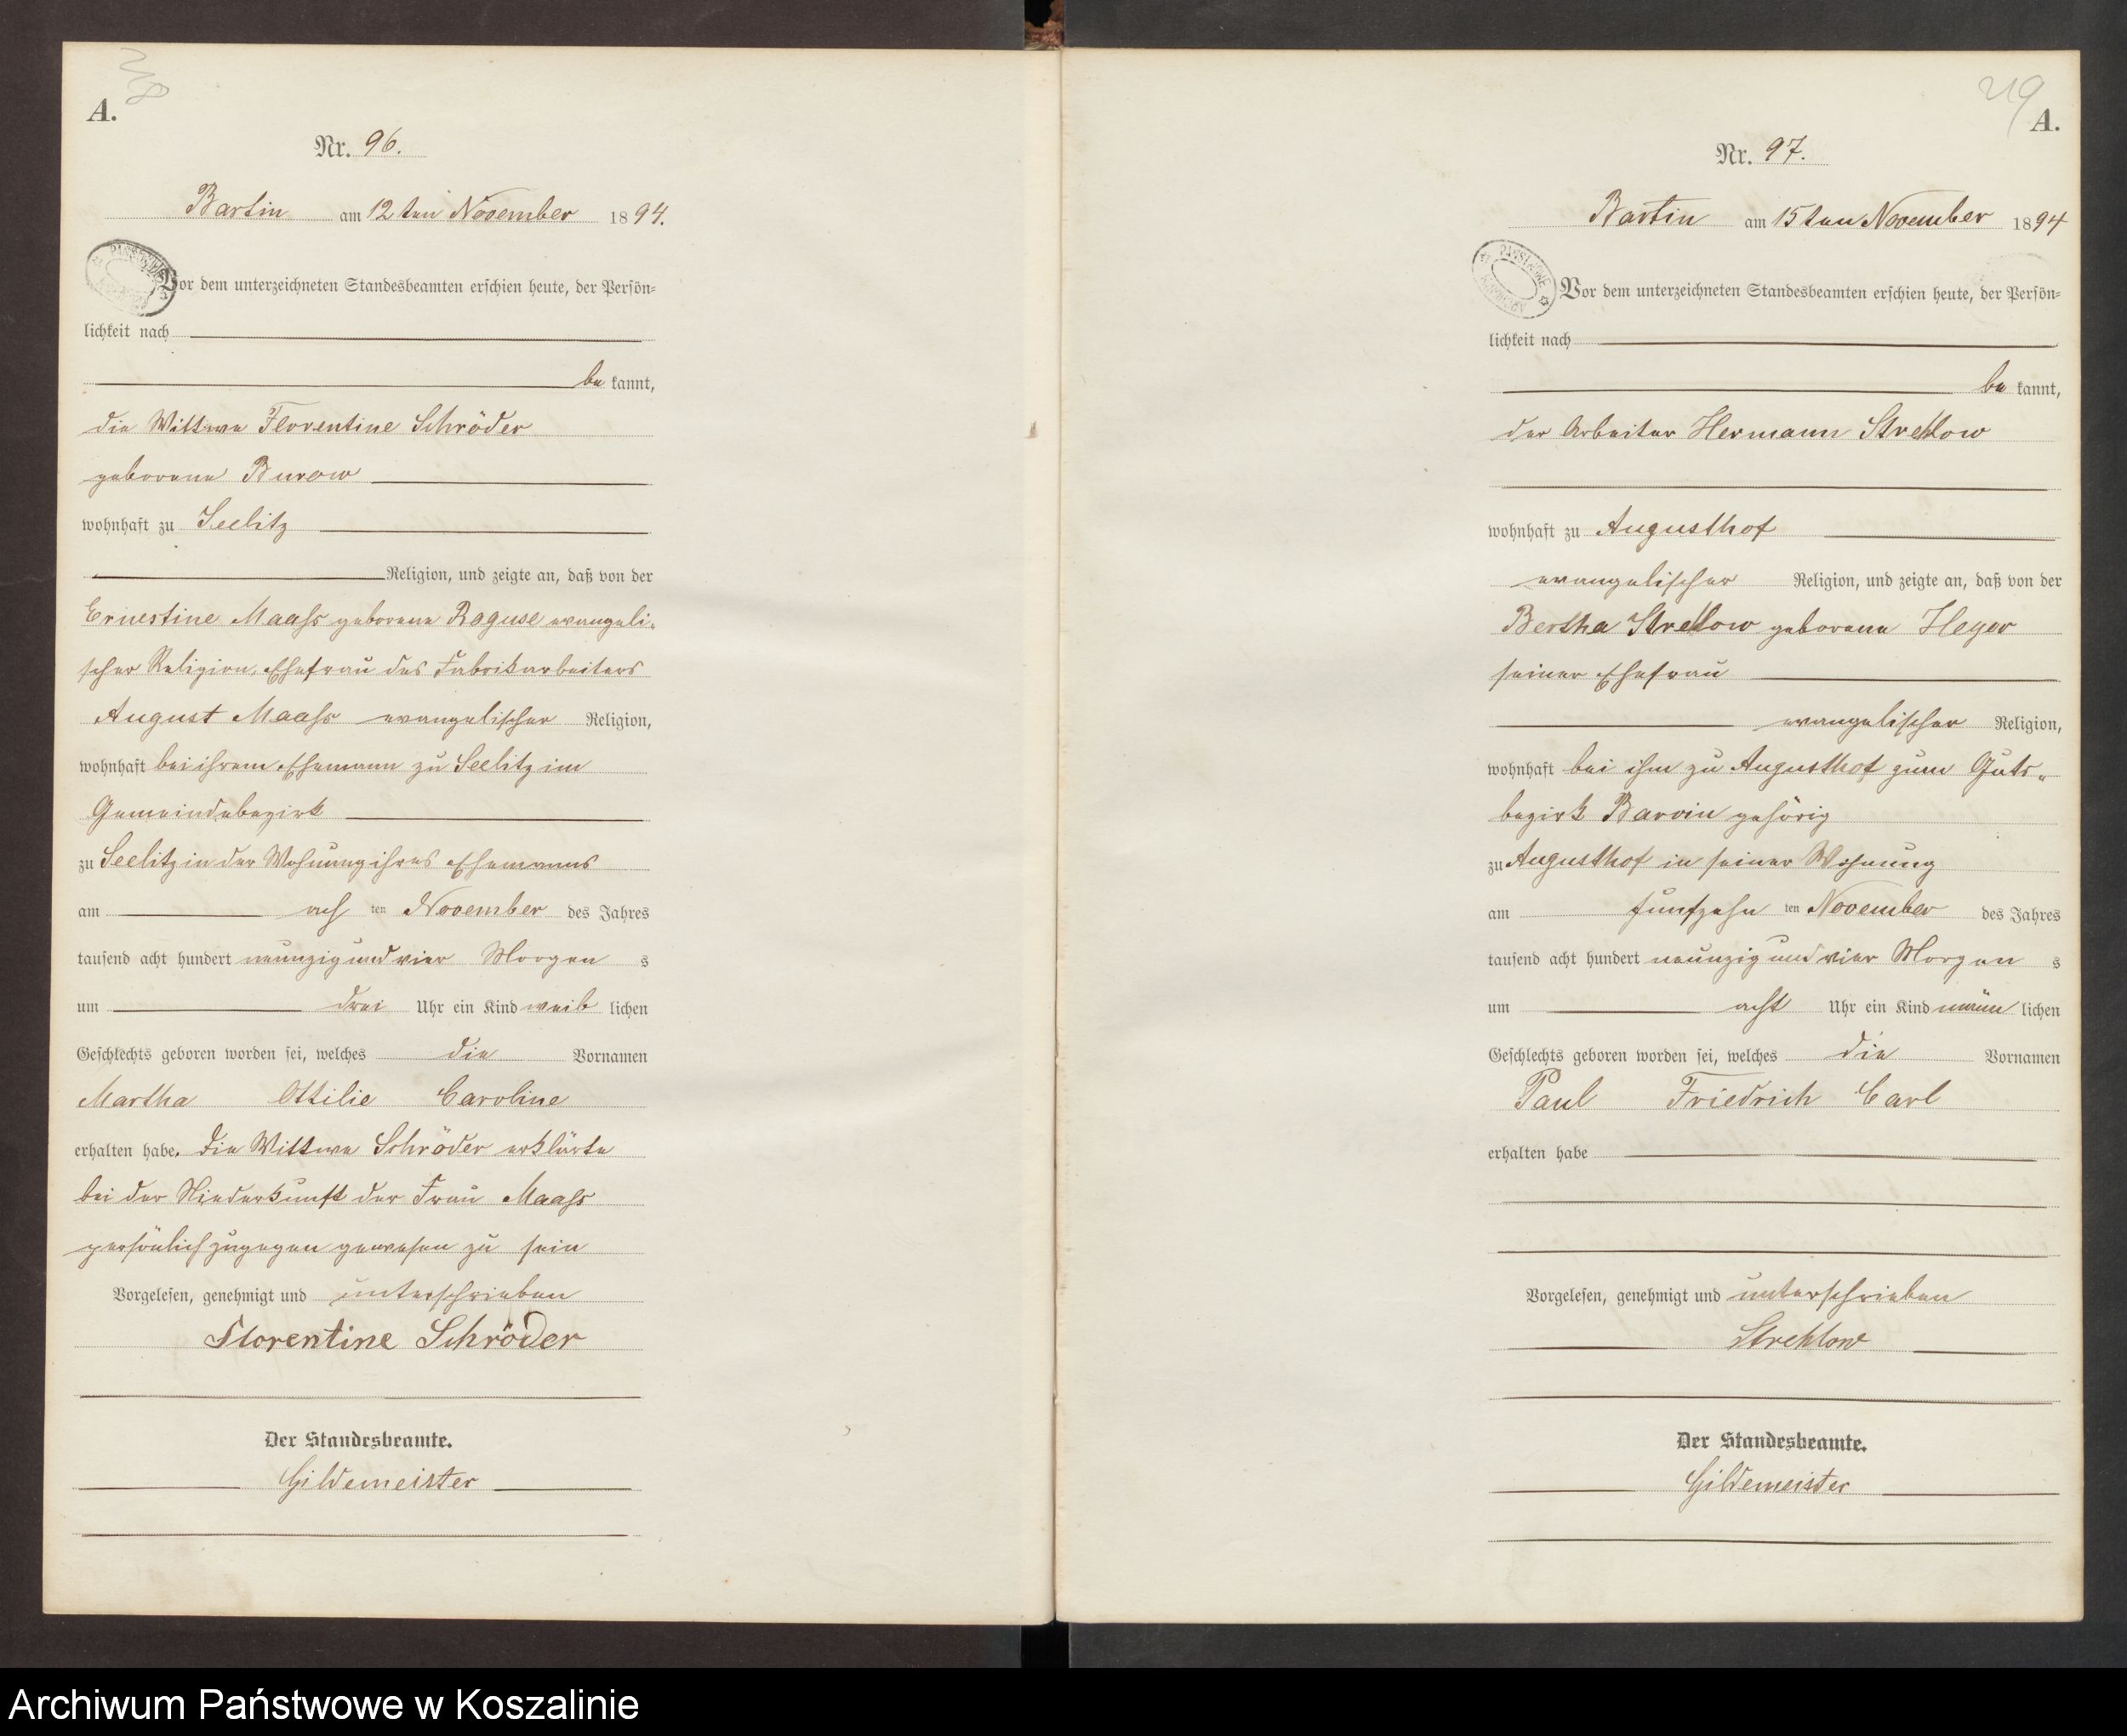 A.
Nr. 96.
Bartin am 12ten November 1894.
Vor dem unterzeichneten Standesbeamten erschien heute, der Persön-
lichkeit nach
be kannt,
die Wittwe Florentine Schröder
geborene Burow
wohnhaft zu Seelitz
Religion, und zeigte an, daß von der
Ernestine Maass geborene Raguse evangeli-
scher Religion, Ehefrau des Fabrikarbeiters
August Maass evangelischer Religion,
wohnhaft bei ihrem Ehemann zu Seelitz im
Gemeindebezirk
zu Seelitz in der Wohnung ihres Ehemanns
am ach ten November des Jahres
tausend acht hundert neunzig und vier Morgen s
um drei Uhr ein Kind weib lichen
Geschlechts geboren worden sei, welches die Vornamen
Martha Ottilie Caroline
erhalten habe. Die Wittwe Schröder erklärte
bei der Niederkunft der Frau Maass
persönlich zugegen gewesen zu sein
Vorgelesen, genehmigt und unterschrieben
Florentine Schröder
Der Standesbeamte.
Gildemeister
219
A.
Nr. 97.
Bartin am 15ten November 1894
Vor dem unterzeichneten Standesbeamten erschien heute, der Persön-
lichkeit nach
be kannt,
der Arbeiter Hermann Strehlow
wohnhaft zu Augusthof
evangelischer Religion, und zeigte an, daß von der
Bertha Strehlow geborene Heyer
seiner Ehefrau
evangelischer Religion,
wohnhaft bei ihm zu Augusthof zum Guts-
bezirk Barvin gehörig
zu Augusthof in seiner Wohnung
am fünfzehn ten November des Jahres
tausend acht hundert neunzig und vier Morgen s
um acht Uhr ein Kind männ lichen
Geschlechts geboren worden sei, welches die Vornamen
Paul Friedrich Carl
erhalten habe
Vorgelesen, genehmigt und unterschrieben
Strehlow
Der Standesbeamte.
Gildemeister
Archiwum Państwowe w Koszalinie